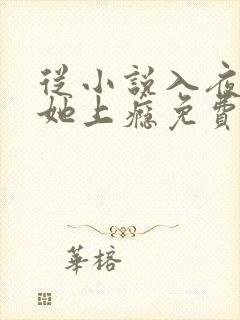 從小說入夜
她上癮免費
華榕